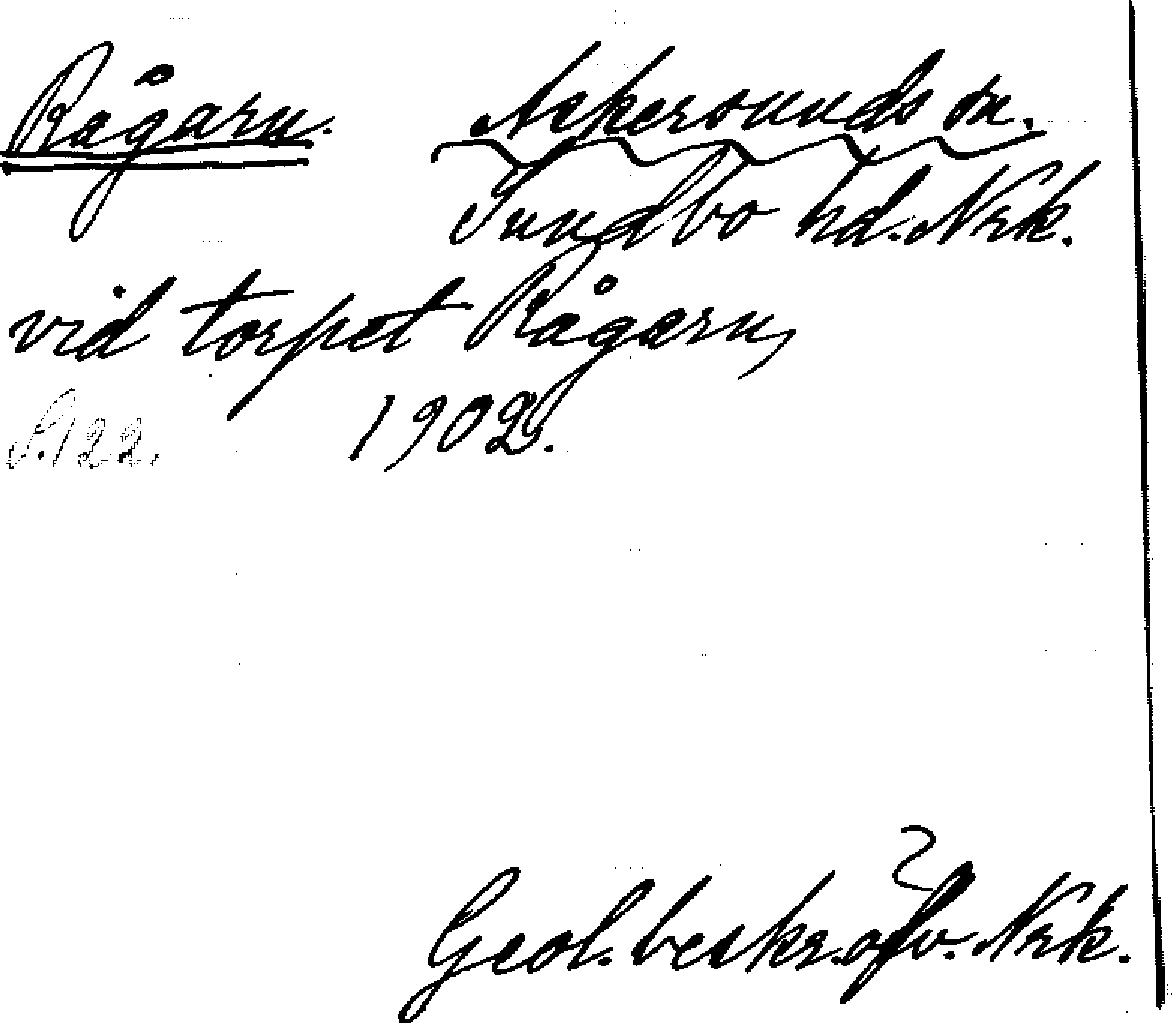 Rågarn. Askersunds sn.
Sundbo hd. Nrk.
vid torpet Rågarn,
S. 122. 1902.
Geol. beskr. öfv. Nrk.